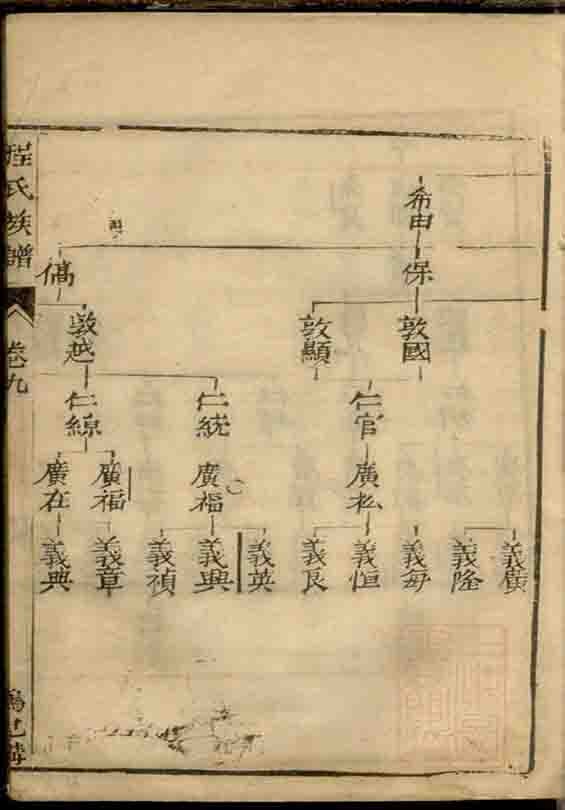 程氏族譜
卷九
希由
保
僑
敦國
敦顯
敦越
仁官
仁統
仁綡
廣松
廣福
廣福
廣在
義廣
義隆
義每
義恒
義良
義英
義興
義禎
義章
義典